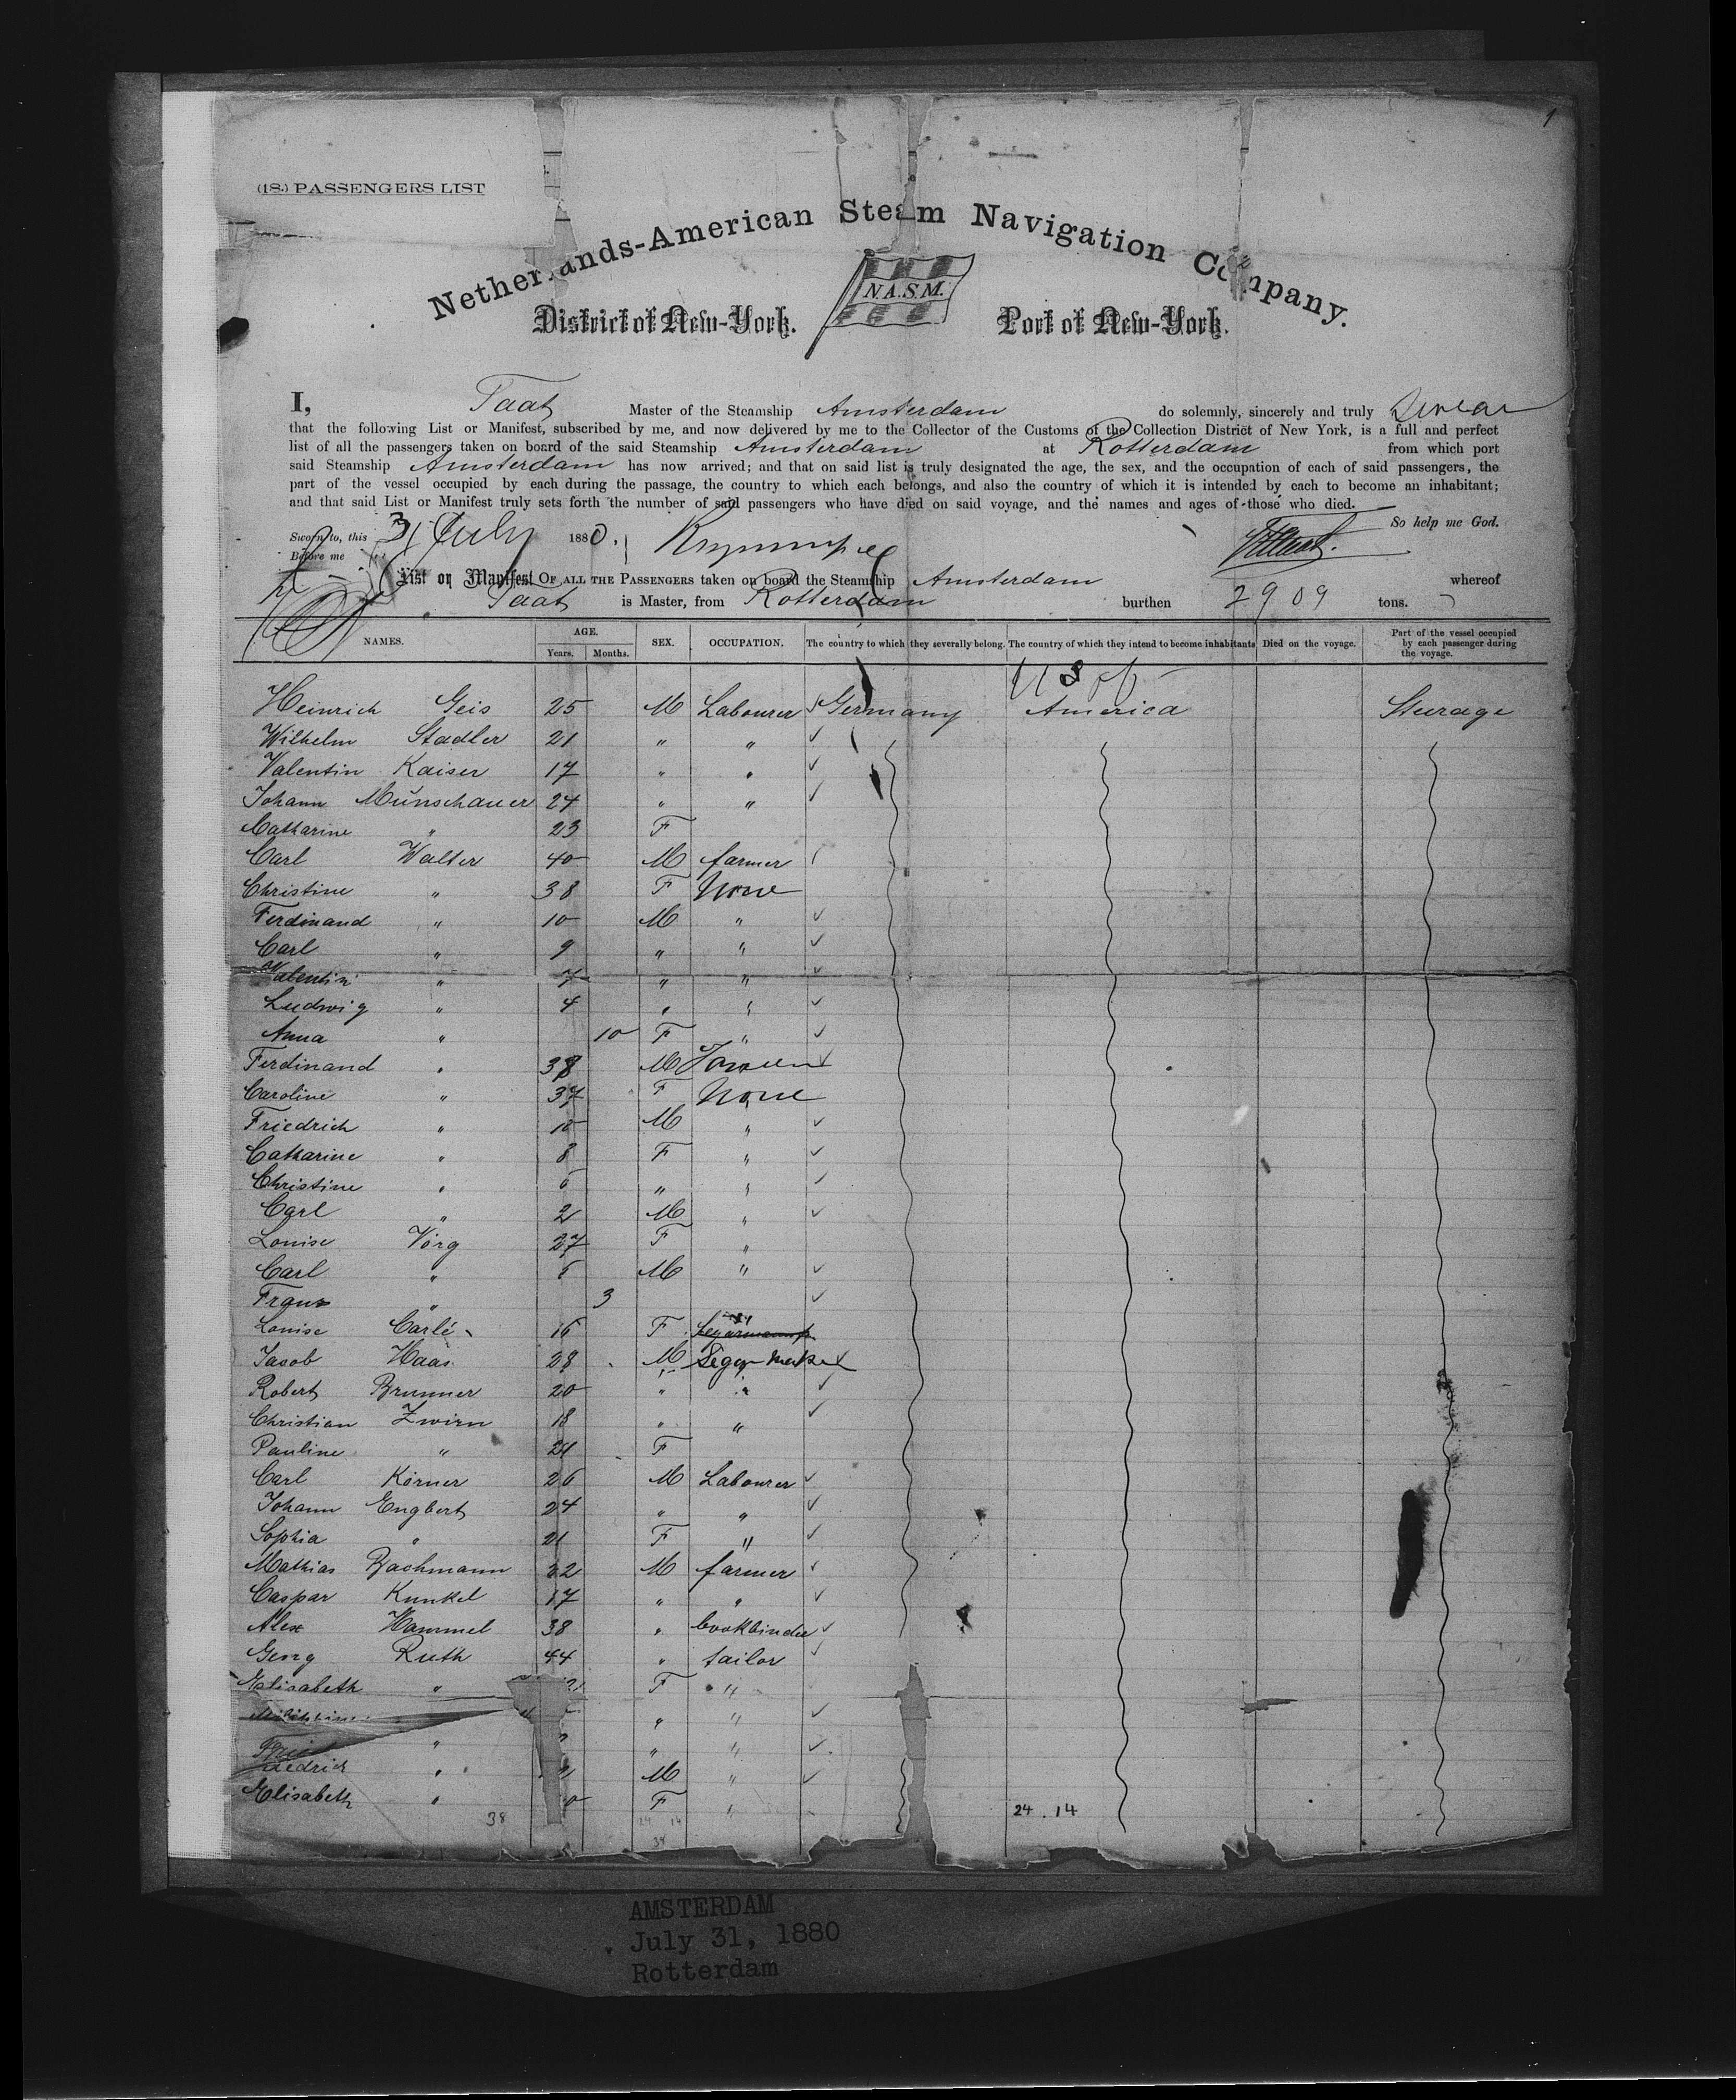 1
(18.) PASSENGERS LIST
Netherlands-American Steam Navigation Company.
N.A.S.M.
District of New-York. Port of New-York.
I, Taat Master of the Steamship Amsterdam do solemnly, sincerely and truly Swear
that the following List or Manifest, subscribed by me, and now delivered by me to the Collector of the Customs of the Collection District of New York, is a full and perfect
list of all the passengers taken on board of the said Steamship Amsterdam at Rotterdam from which port
said Steamship Amsterdam has now arrived; and that on said list is truly designated the age, the sex, and the occupation of each of said passengers, the
part of the vessel occupied by each during the passage, the country to which each belongs, and also the country of which it is intended by each to become an inhabitant;
and that said List or Manifest truly sets forth the number of said passengers who have died on said voyage, and the names and ages of those who died.
So help me God.
Sworn to, this 31 July 1880,
Before me
List or Manifest OF ALL THE PASSENGERS taken on board the Steamship Amsterdam whereof
Taat is Master, from Rotterdam burthen 2909 tons.
NAMES. AGE. Years. Months. SEX. OCCUPATION. The country to which they severally belong. The country of which they intend to become inhabitants Died on the voyage. Part of the vessel occupied by each passenger during the voyage.
U S of
Heinrich Geis 25 M Labourer Germany America Steerage
Wilhelm Stadler 21 " "
Valentin Kaiser 17 " "
Johann Münschauer 24 " "
Catharine " 23 F
Carl Walter 40 M farmer
Christine " 38 F None
Ferdinand " 10 M "
Carl " 9 " "
Valentin " 7 " "
Ludwig " 4 " "
Anna " 10 F "
Ferdinand " 38 M
Caroline " 37 F None
Friedrich " 10 M "
Catharine " 8 F "
Christine " " "
Carl " 2 M "
Louise Vörg 27 F "
Carl " M "
Franz " 3
Louise Carlé 16 F
Jacob Haas 28 M Segar Maker
Robert Brunner 20 " "
Christian Zwirn 18 " "
Pauline " 21 F
Carl Körner 26 M Labourer
Johann Engbert 24 " "
Sophia " 21 F "
Mathias Bachmann 32 M farmer
Caspar Kunkel 17 " "
Alex Hammel 38 " bookbinder
Georg Ruth 44 " tailor
Elisabeth " F "
" "
" " "
Friedrich " M "
Elisabeth " F "
38 24 14 24 . 14
38
AMSTERDAM
July 31, 1880
Rotterdam